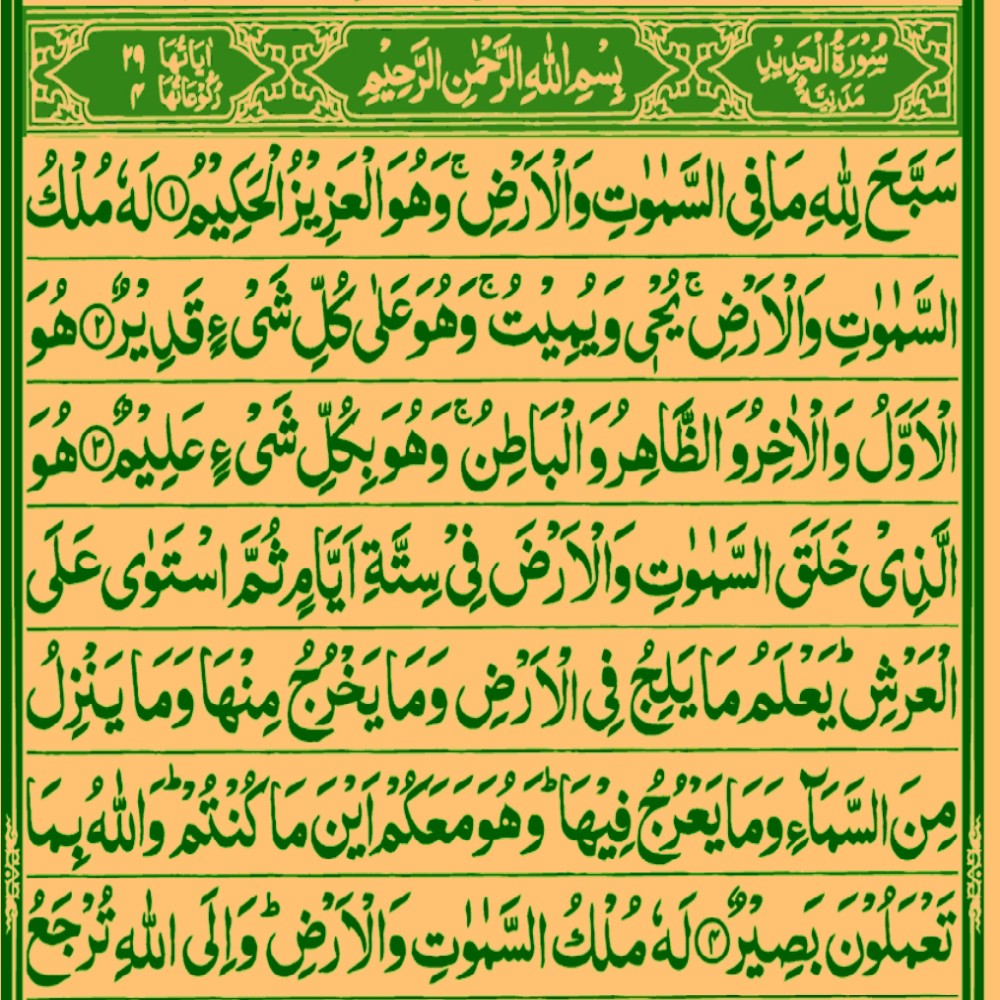 سُوْرَةُ الْحَدِيْدِ مَدَنِيَّةٌ
بِسْمِ اللّٰهِ الرَّحْمٰنِ الرَّحِيْمِ
اٰيَاتُهَا ٢٩
رُكُوْعَاتُهَا ٤
سَبَّحَ لِلّٰهِ مَا فِی السَّمٰوٰتِ وَالْاَرْضِ ۚ وَهُوَ الْعَزِيْزُ الْحَكِيْمُ ① لَهٗ مُلْكُ
السَّمٰوٰتِ وَالْاَرْضِ ۚ يُحْیٖ وَيُمِيْتُ ۚ وَهُوَ عَلٰی كُلِّ شَیْءٍ قَدِيْرٌ ② هُوَ
الْاَوَّلُ وَالْاٰخِرُ وَ الظَّاهِرُ وَ الْبَاطِنُ ۚ وَهُوَ بِكُلِّ شَیْءٍ عَلِيْمٌ ③ هُوَ
الَّذِیْ خَلَقَ السَّمٰوٰتِ وَالْاَرْضَ فِیْ سِتَّةِ اَيَّامٍ ثُمَّ اسْتَوٰی عَلَی
الْعَرْشِ ؕ يَعْلَمُ مَا يَلِجُ فِی الْاَرْضِ وَمَا يَخْرُجُ مِنْهَا وَمَا يَنْزِلُ
مِنَ السَّمَآءِ وَمَا يَعْرُجُ فِيْهَا ؕ وَهُوَ مَعَكُمْ اَيْنَ مَا كُنْتُمْ ؕ وَاللّٰهُ بِمَا
تَعْمَلُوْنَ بَصِيْرٌ ④ لَهٗ مُلْكُ السَّمٰوٰتِ وَالْاَرْضِ ؕ وَاِلَی اللّٰهِ تُرْجَعُ